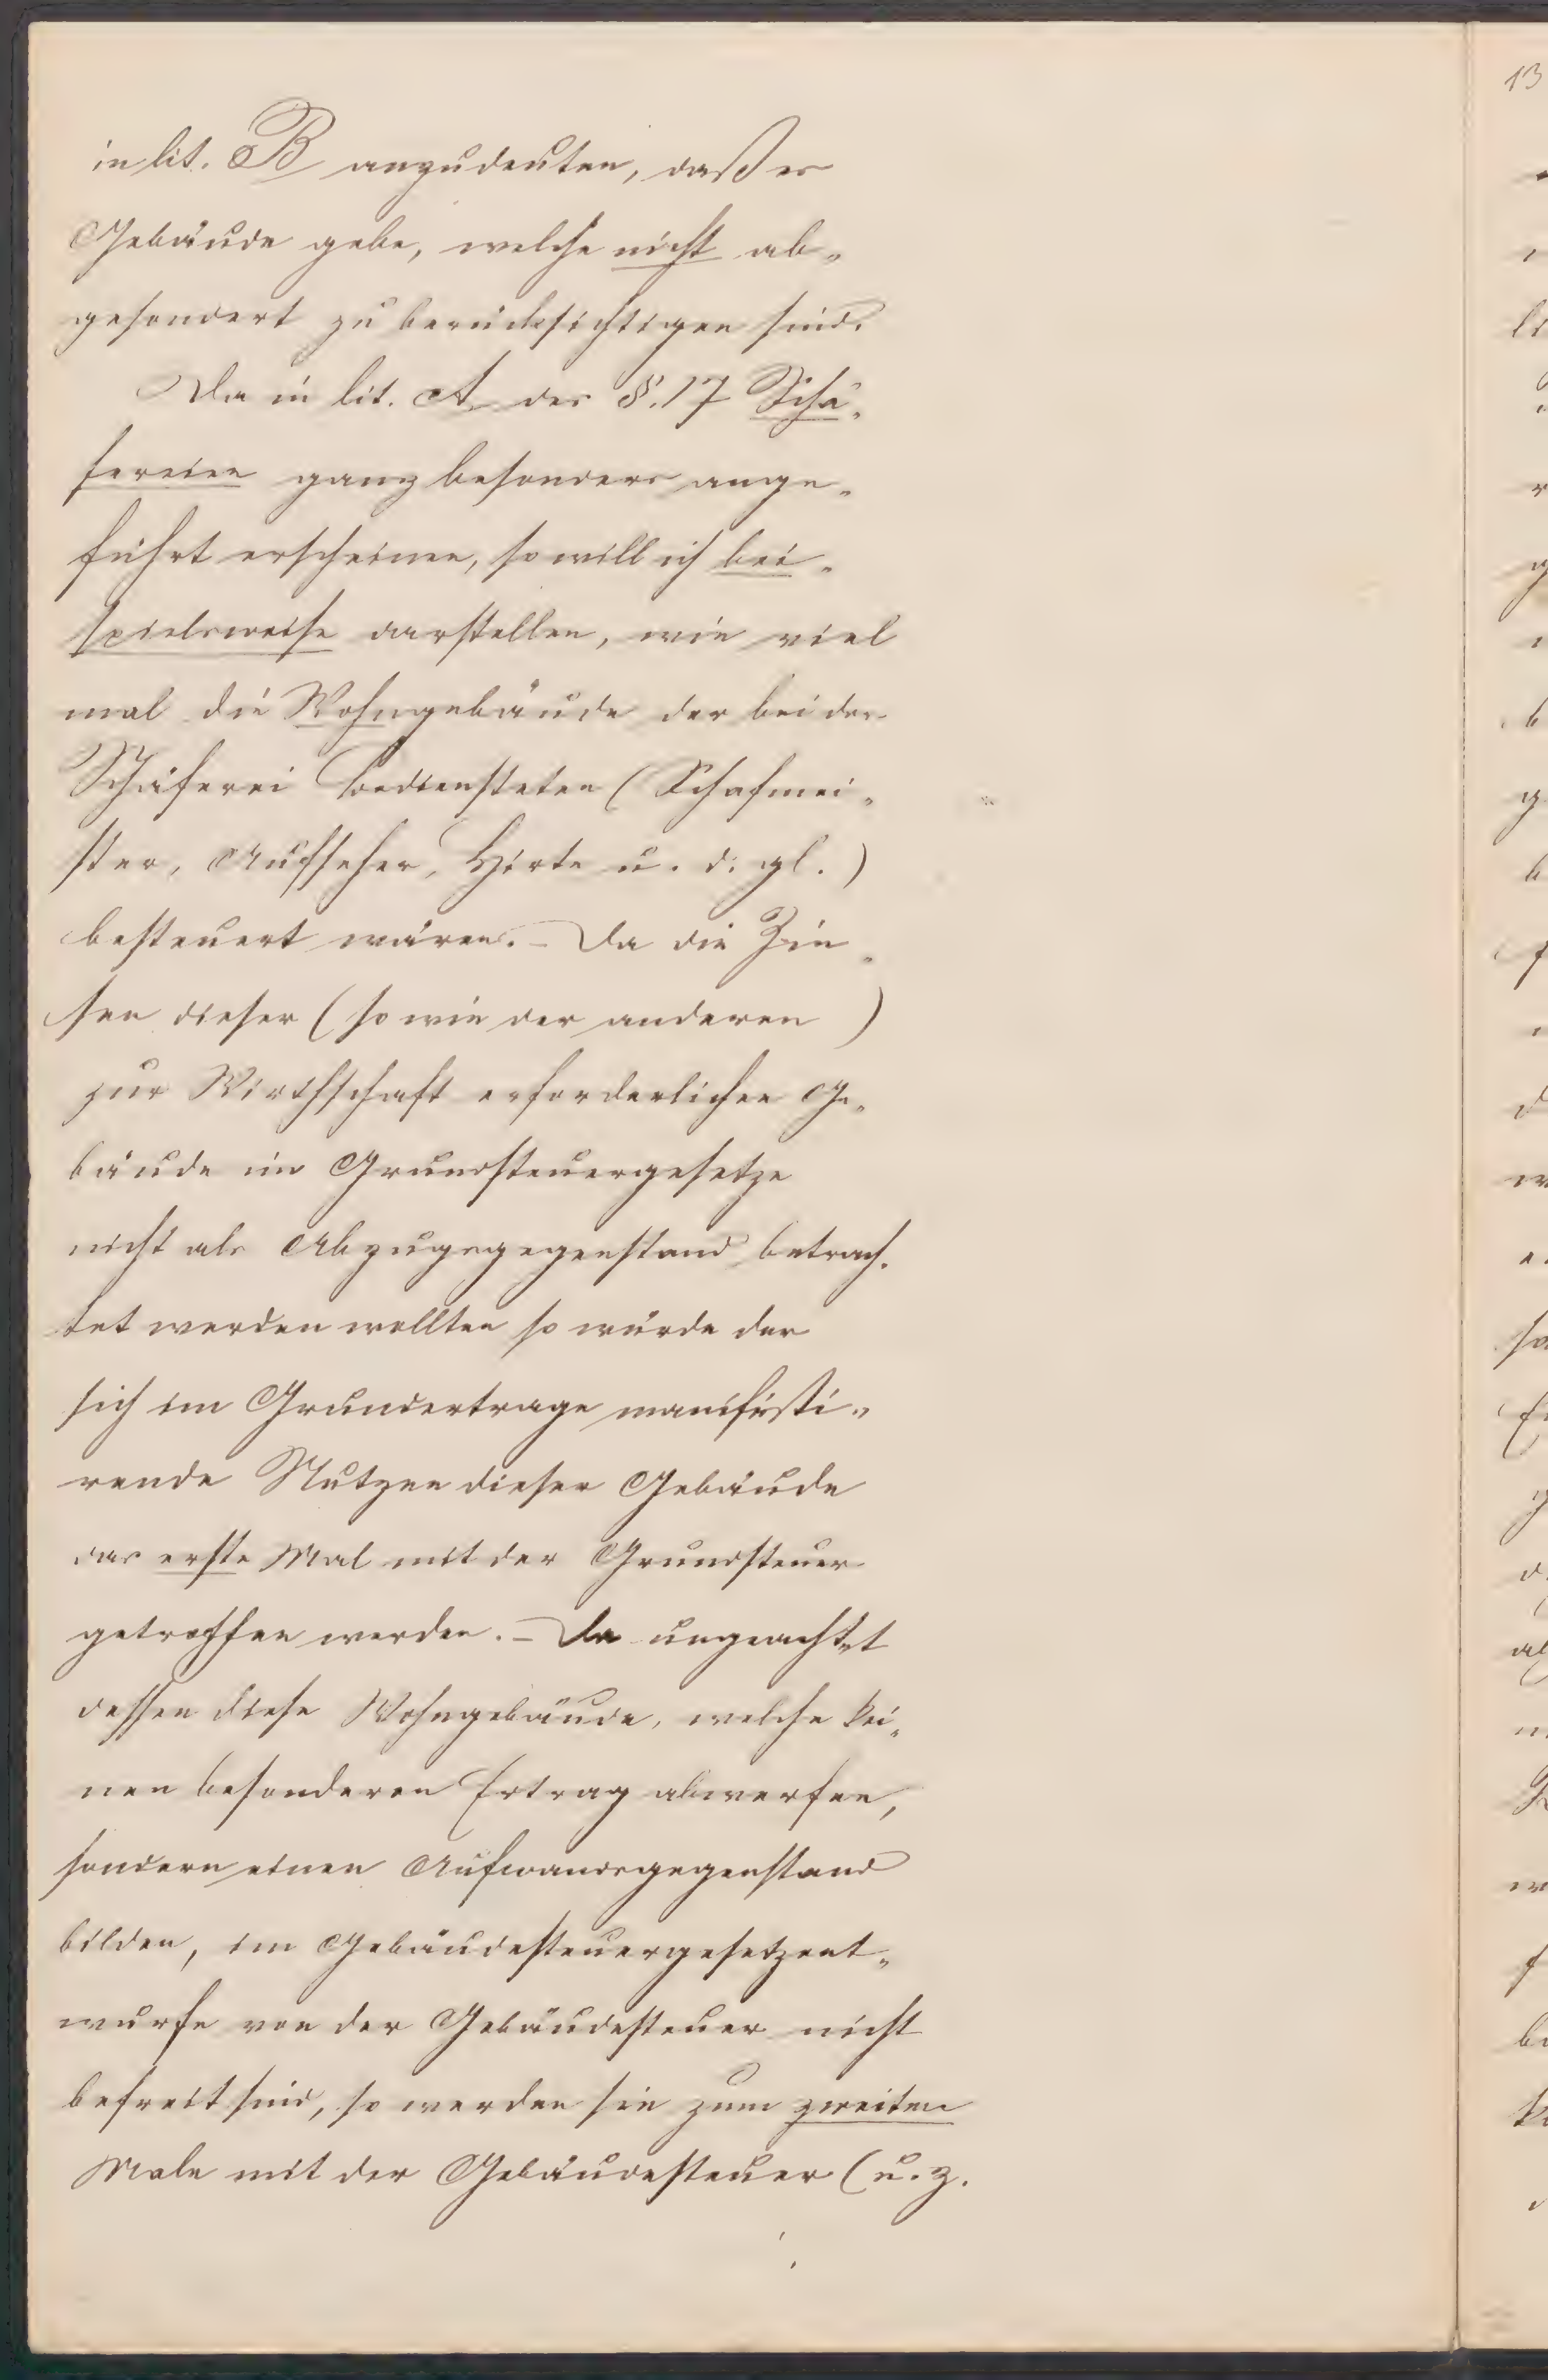 in lit. B anzudeuten, daß es
Gebäude gebe, welche nicht ab-
gesondert zu berücksichtigen sind.
Da in lit. A des §. 17 Schä-
fereien ganz besonders ange-
führt erscheinen, so will ich bei-
spielsweise darstellen, wie viel
mal die Wohngebäude der bei der
Schäferei Bediensteten (Schafmei-
ster, Aufseher, Hirte u. d. gl.)
besteuert wären. – Da die Zin-
sen dieser (so wie der anderen)
zur Wirthschaft erforderlichen Ge-
bäude im Grundsteuergesetze
nicht als Abzugsgegenstand betrach-
tet werden wollten so würde der
sich im Grundertrage manifesti-
rende Nutzen dieser Gebäude
das erste Mal mit der Grundsteuer
getroffen werden. – Da ungeachtet
dessen diese Wohngebäude, welche kei-
nen besonderen Ertrag abwerfen,
sondern einen Aufwandsgegenstand
bilden, im Gebäudesteuergesetzent-
wurfe von der Gebäudesteuer nicht
befreit sind, so werden sie zum zweiten
Male mit der Gebäudesteuer (u. z.
13